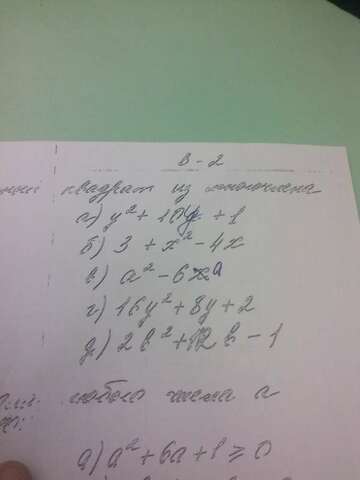 В - 2
квадрат из многочлена
а) y² + 10y + 1
б) 3 + x² - 4x
в) a² - 6a
г) 16y² + 8y + 2
д) 2b² + 12b - 1
любого числа a
а) a² + 6a + 1 ≥ 0